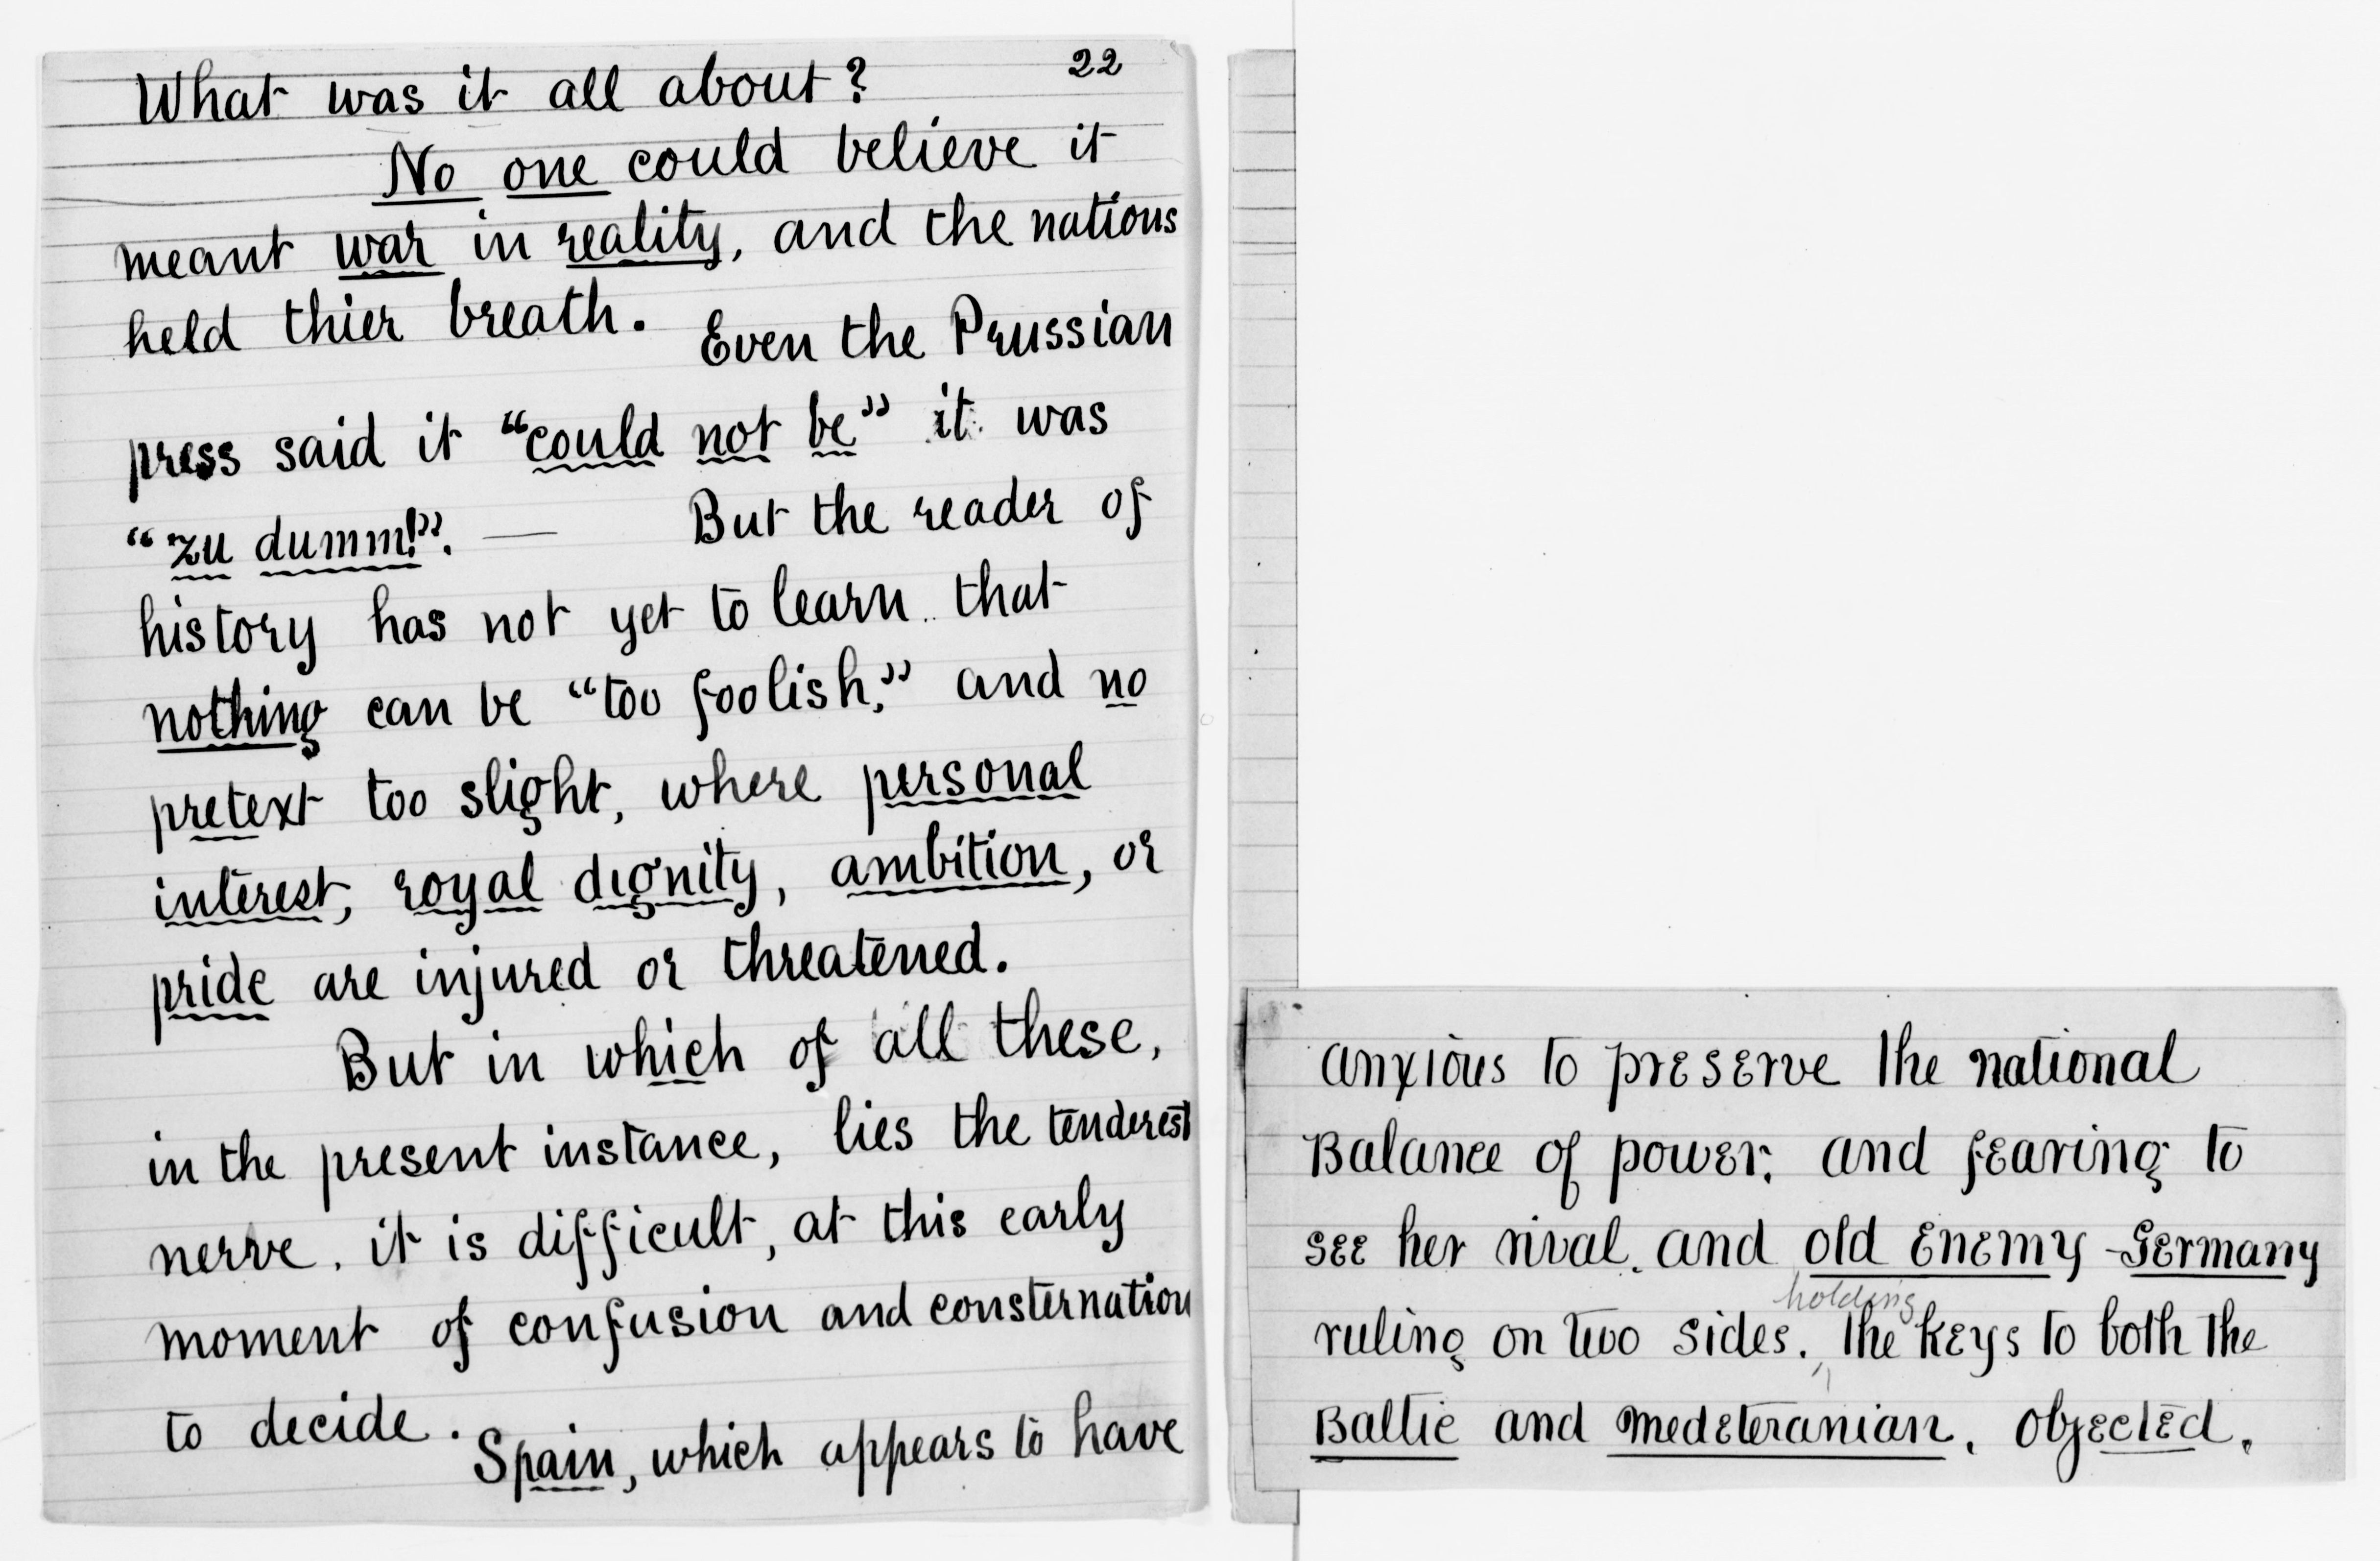 22
What was it all about?
No one could believe it
meant war in reality, and the nations
held thier breath. Even the Prussian
press said it "could not be" it was
"zu dumm!". — But the reader of
history has not yet to learn that
nothing can be "too foolish," and no
pretext too slight, where personal
interest, royal dignity, ambition, or
pride are injured or threatened.
But in which of all these,
in the present instance, lies the tenderest
nerve, it is difficult, at this early
moment of confusion and consternation
to decide. Spain, which appears to have
anxious to preserve the national
Balance of power; and fearing to
see her rival, and old enemy - Germany
holding
ruling on two sides, the keys to both the
Baltic and Medeteranian, objected.